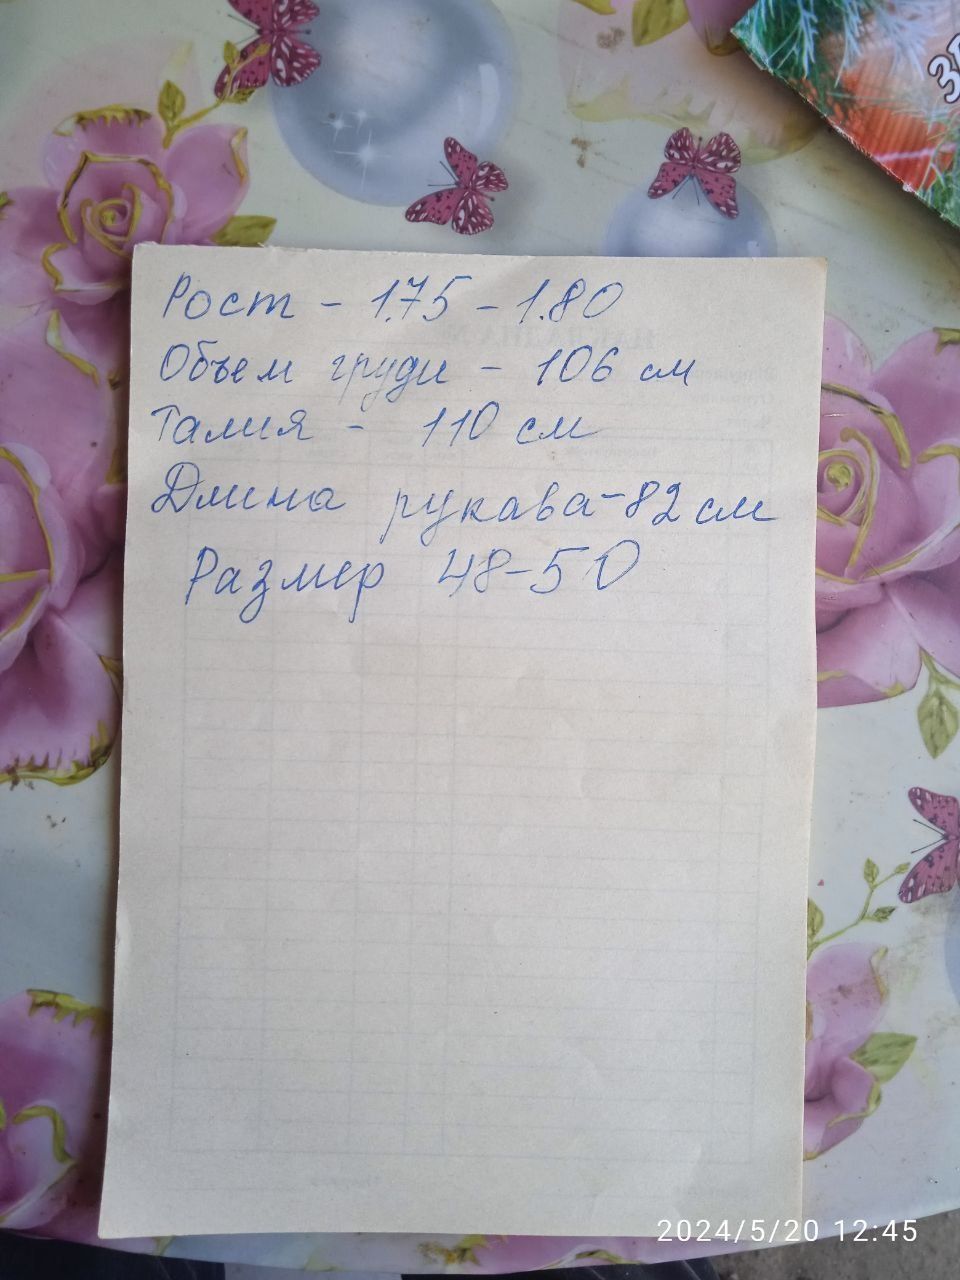 Рост - 1.75 - 1.80
Объем груди - 106 см
Талия - 110 см
Длина рукава - 82 см
Размер 48-50
2024/5/20 12:45